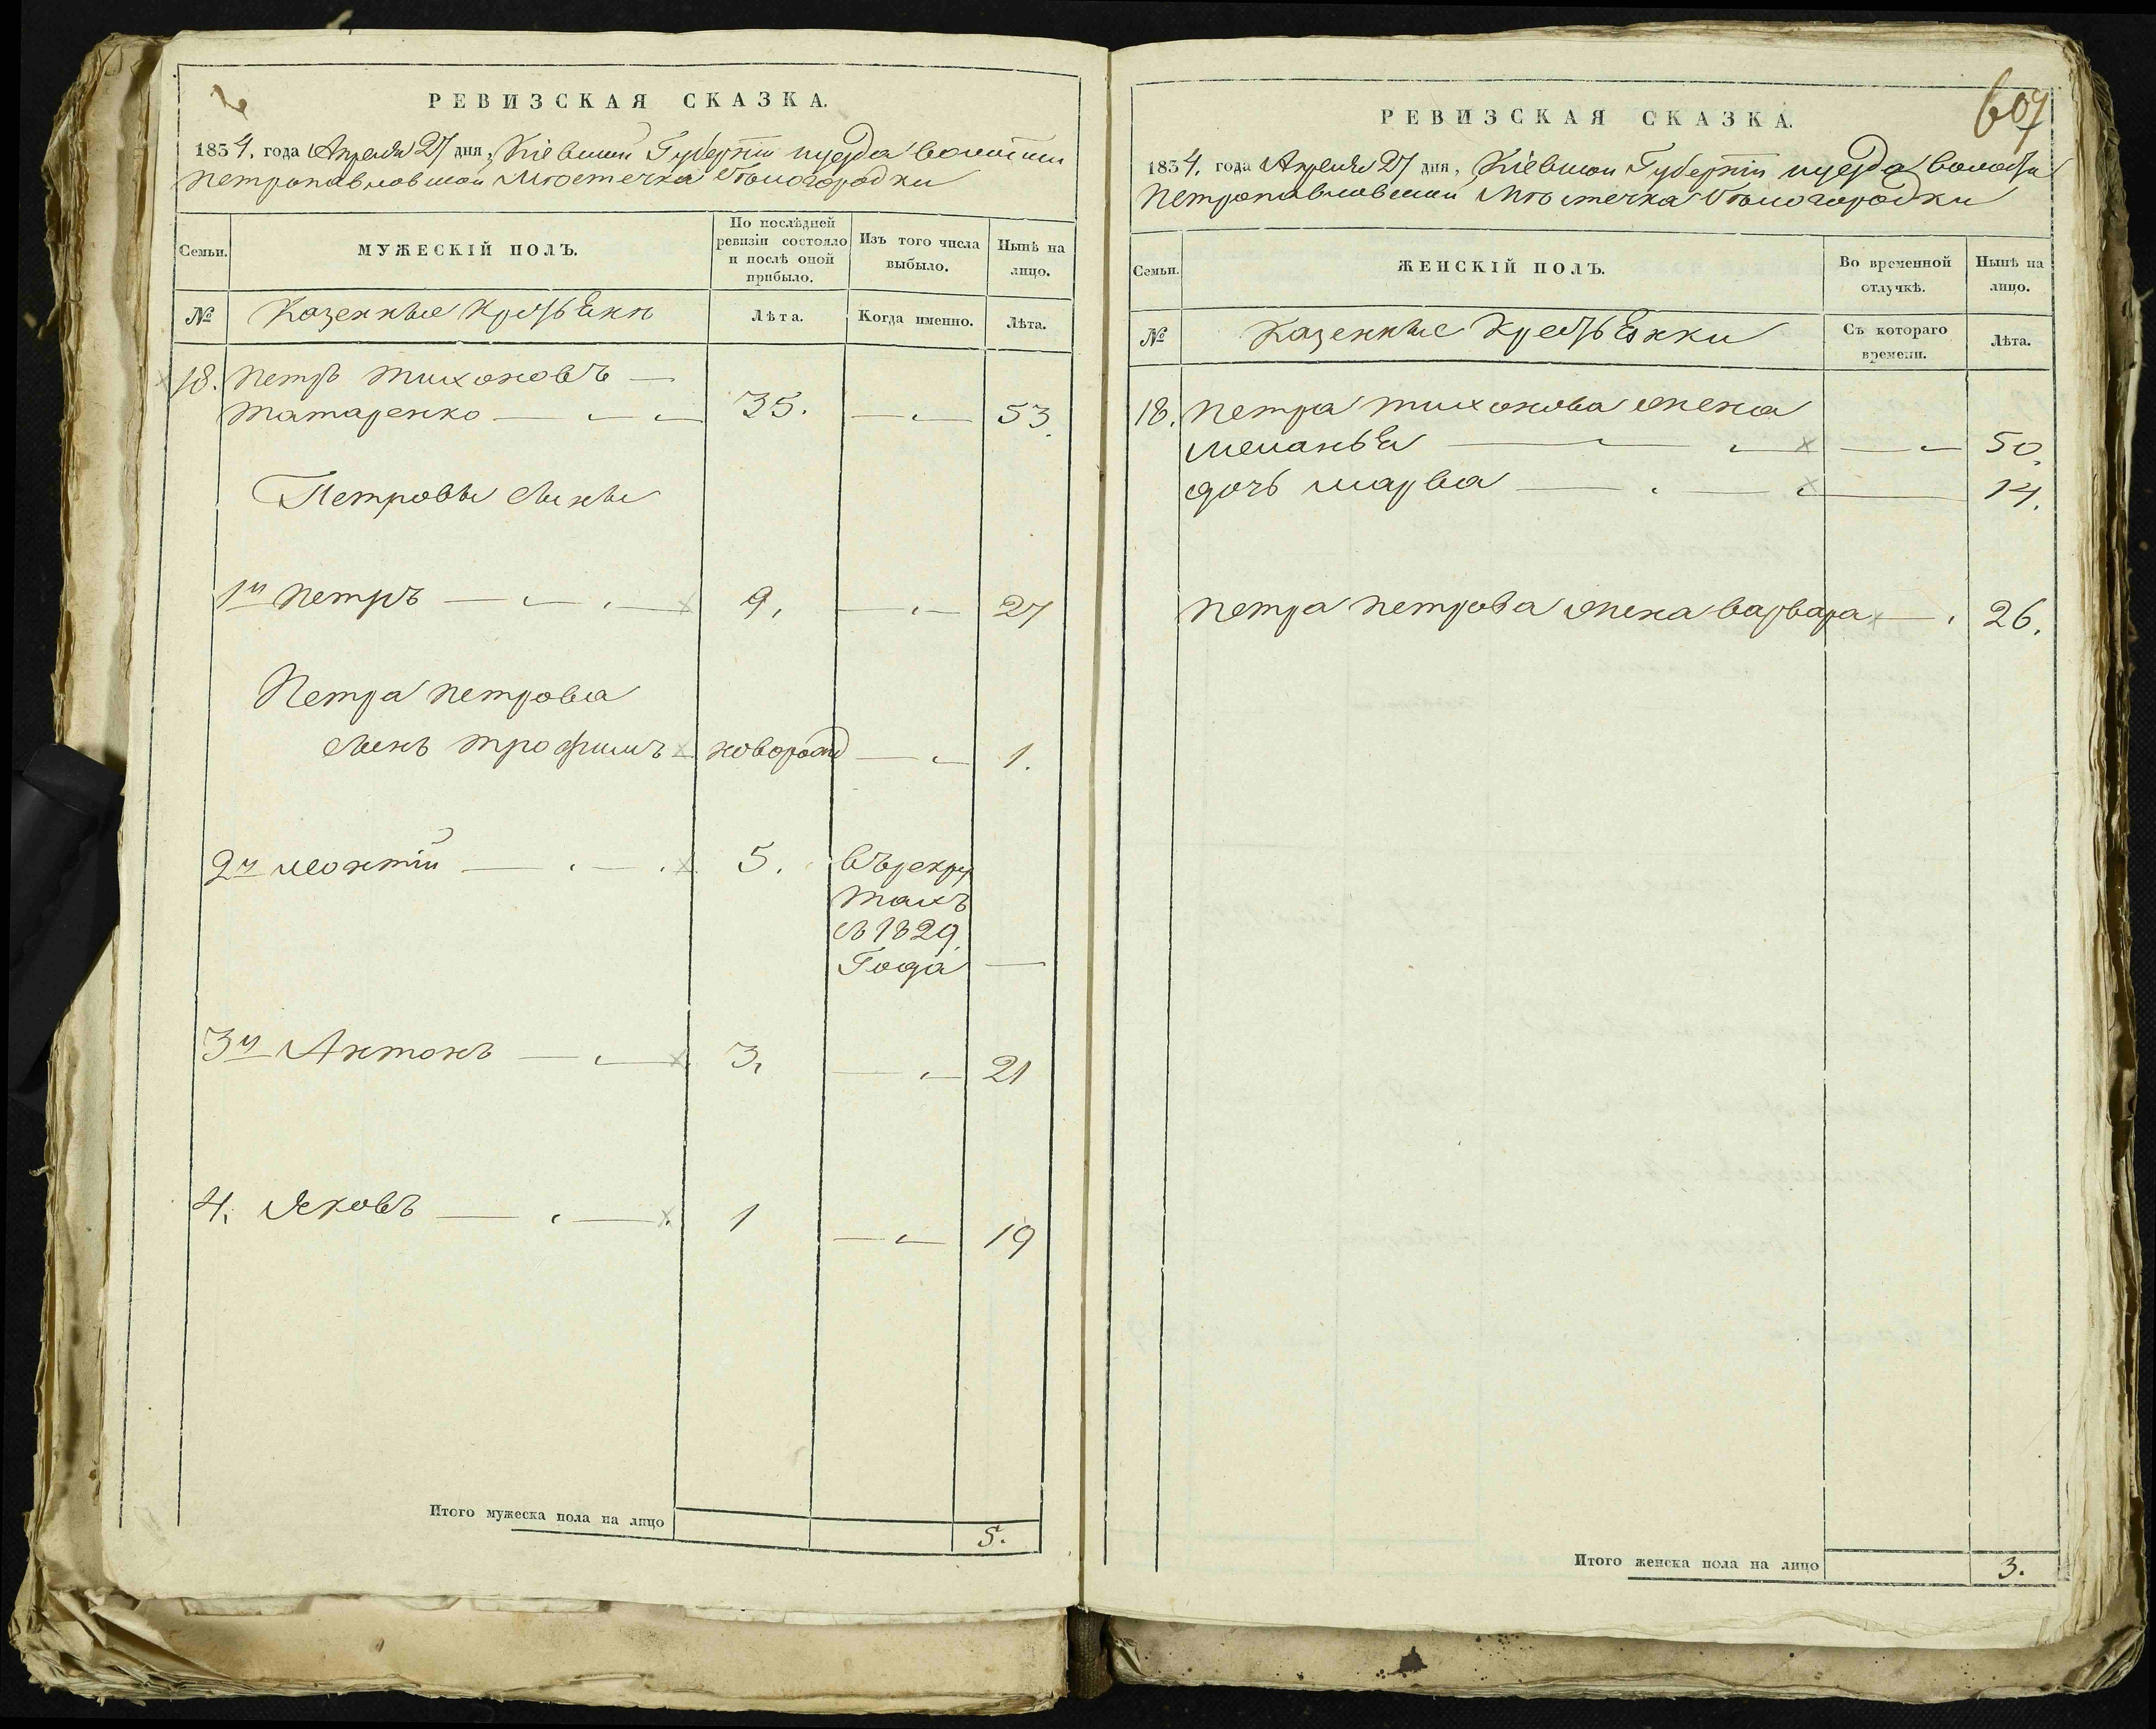 РЕВИЗСКАЯ СКАЗКА.
1834. года Апреля 27 дня, Кіевской Губерніи иуезда волости
Петропавловской Мѣстечка Бѣлогородки
Семьи.
МУЖЕСКІЙ ПОЛЪ.
По послѣдней ревизіи состояло и послѣ оной прибыло.
Изъ того числа выбыло.
Нынѣ на лицо.
№
Казенные Крестьяни
Лѣта.
Когда именно.
Лѣта.
18. Петръ Тихоновъ —
Татаренко — 35. — 53.
Петровы Сыны
1й Петръ — 9. — 27
Петра Петрова
Сынъ Трофимъ новорожд — 1.
2й Леонтій — 5. Въ рекру
такъ
съ 1829.
Года —
3й Антонъ — 3. — 21
4. Яковъ — 1 — 19
Итого мужеска пола на лицо 5.
607
РЕВИЗСКАЯ СКАЗКА.
1834. года Апреля 27 дня, Кіевской Губерніи иуезда волости
Петропавловской Мѣстечка Бѣлогородки
Семьи.
ЖЕНСКІЙ ПОЛЪ.
Во временной отлучкѣ.
Нынѣ на лицо.
№
Казенные Крестьянки
Съ котораго времени.
Лѣта.
18. Петра Тихонова жена
Меланья — — 50.
дочь Марва — 14.
Петра Петрова жена Варвара — 26.
Итого женска пола на лицо 3.